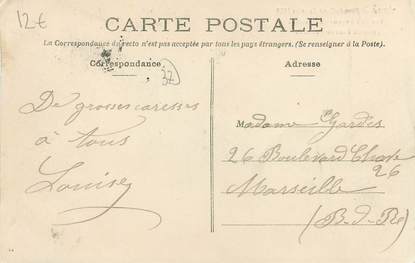 12€
CARTE POSTALE
La Correspondance du recto n'est pas acceptée par tous les pays étrangers. (Se renseigner à la Poste).
Correspondance
Adresse
De grosses caresses
à tous
Louise
Madame Gardes
26 Boulevard
26
Marseille
(B-d-R)